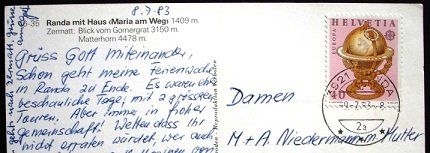 8.7.83
35 Randa mit Haus ‹Maria am Weg› 1409 m.
Zermatt: Blick vom Gornergrat 3150 m.
Matterhorn 4478 m.
Grüss Gott miteinander,
Schon geht meine Ferienwoche
in Randa zu Ende. Es waren
beschauliche Tage, mit 2 grossen
Touren. Aber immer in froher
Gemeinschaft! Wetten dass Ihr
nicht erraten würdet, wer auch
geht nach Zermatt, Grüsse
HELVETIA
EUROPA
40
RANDA
-9.-7.83-8
2a
Damen
M + A Niedermann m. Mutter